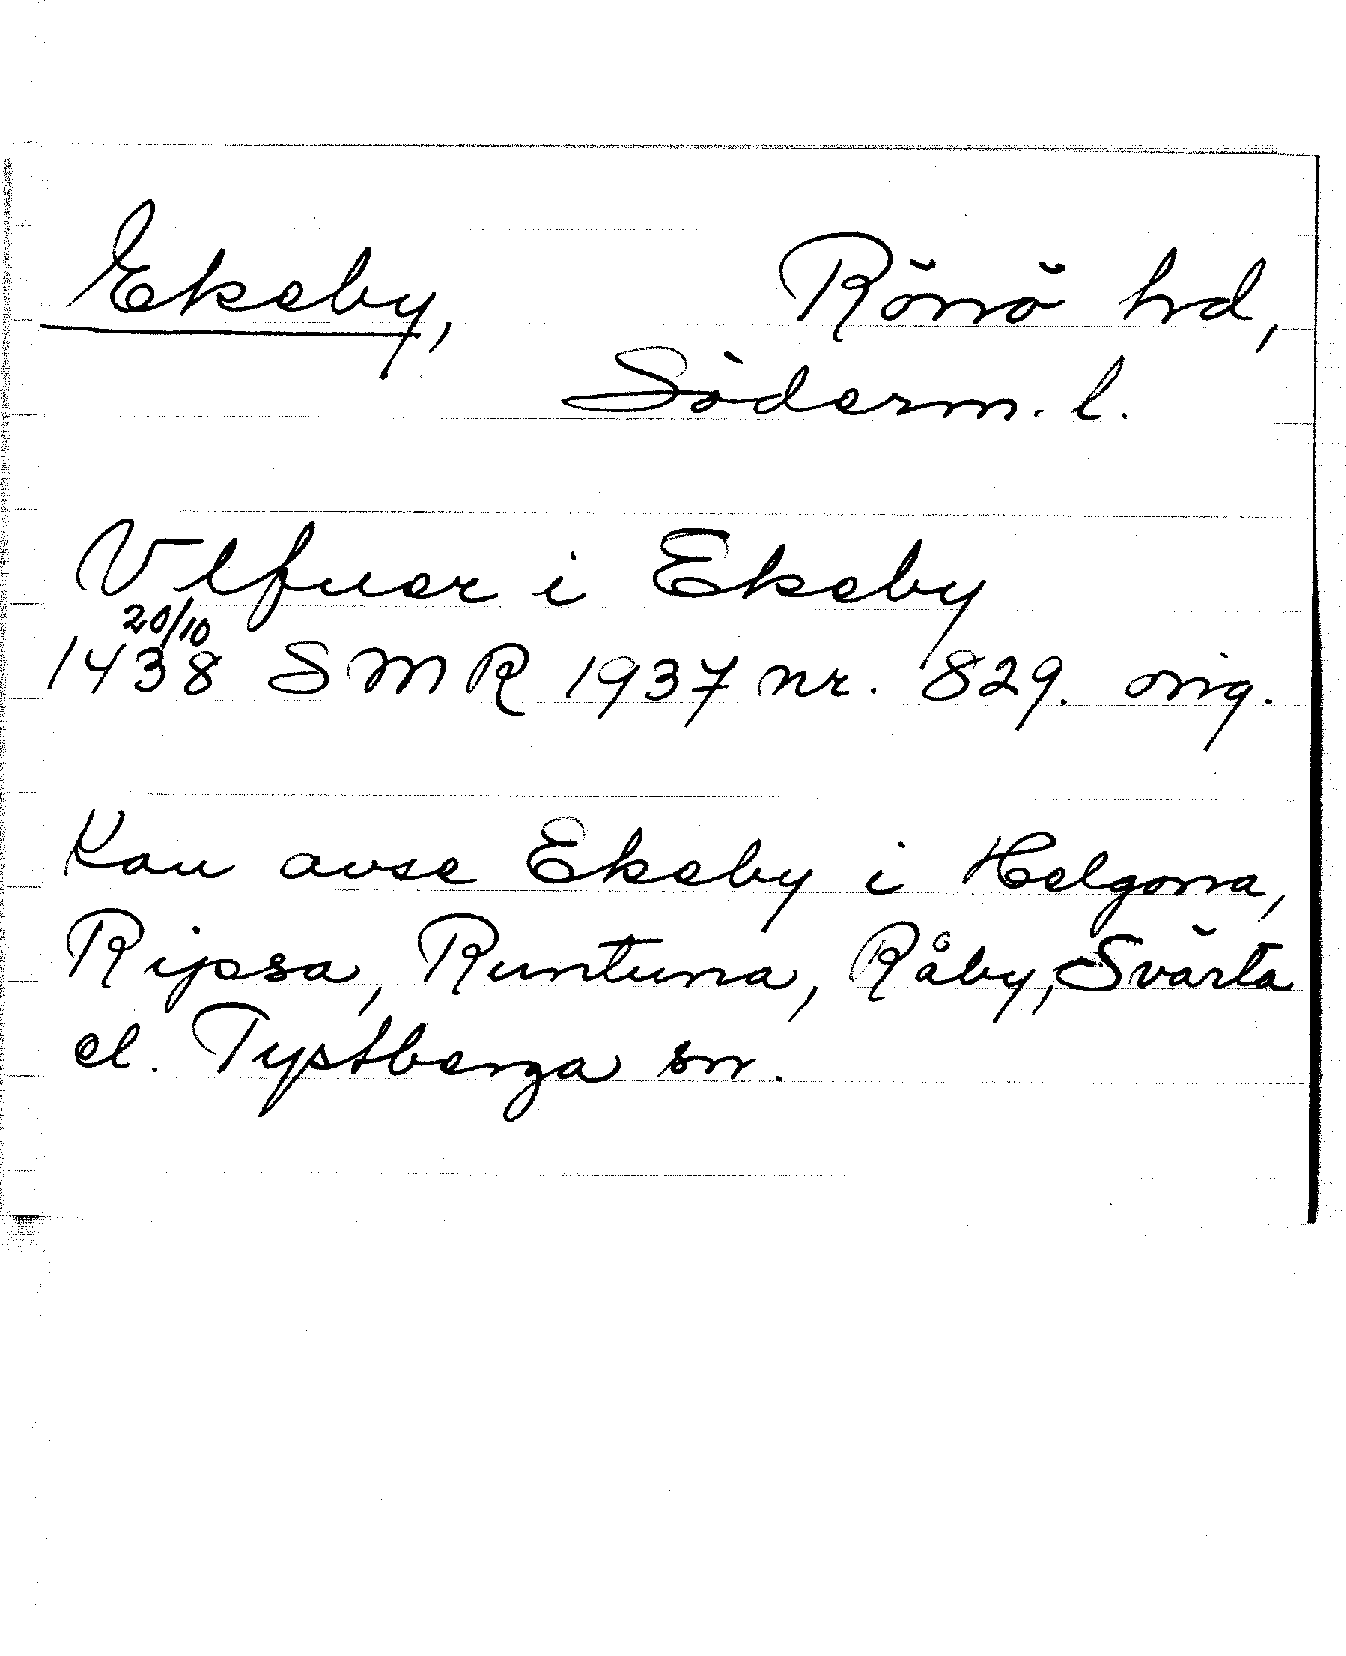 Ekeby, Rönö hrd,
Söderm. l.
Vlfuer i Ekeby
20/10
1438 SMR 1937 nr. 829. orig.
Kan avse Ekeby i Helgona,
Ripsa, Runtuna, Råby, Svärta
el. Tystberga snr.